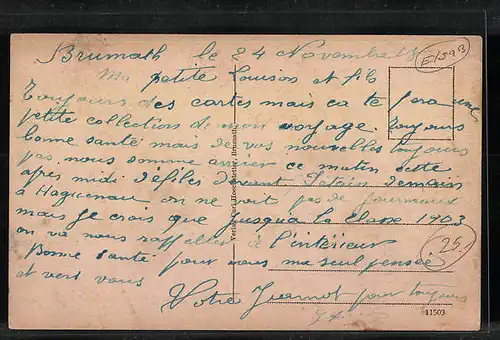 Brumath le 24 Novembre 18
Ma petite Louison et fils
Toujours des cartes mais ca te fera une
petite collection de mon voyage. Toujours
bonne santé mais de vos nouvelles toujours
pas nous somme arriver ce matin cette
apres midi défiler devant Demain
à Haguenau on ne voit pas de journaux
mais je crois que jusqua la classe 1903
on va nous rappeller à l'intérieur
Bonne santé pour vous ma seul pensée
et vers vous
Votre pour toujours
E1593
25.-
Verlag Carl Brumath
11503